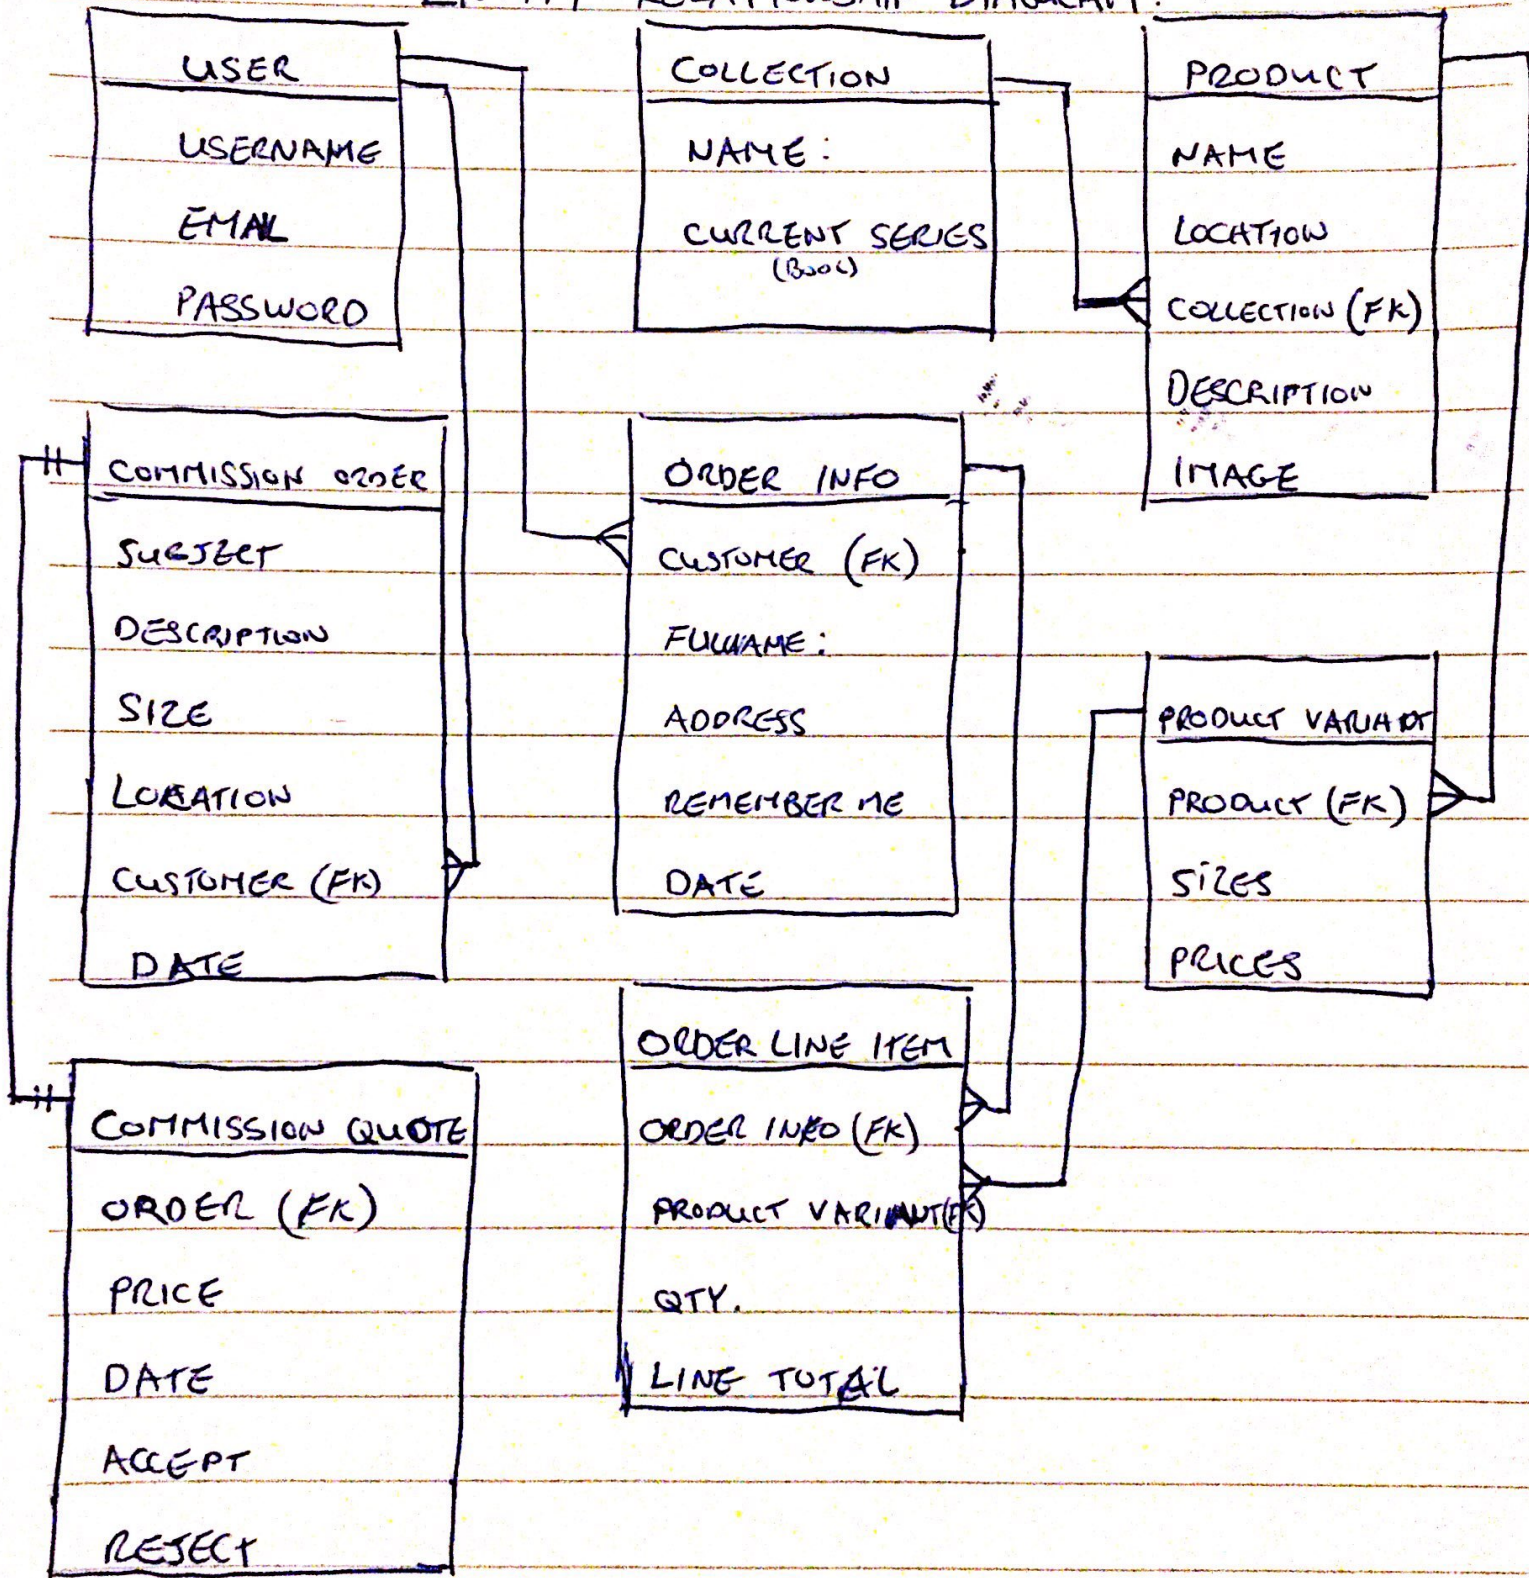 RELATIONSHIP DIAGRAM.
USER
USERNAME
EMAIL
PASSWORD
COLLECTION
NAME:
CURRENT SERIES
(BOOL)
PRODUCT
NAME
LOCATION
COLLECTION (FK)
DESCRIPTION
IMAGE
COMMISSION ORDER
SUBJECT
DESCRIPTION
SIZE
LOCATION
CUSTOMER (FK)
DATE
ORDER INFO
CUSTOMER (FK)
FULLNAME:
ADDRESS
REMEMBER ME
DATE
PRODUCT VARIANT
PRODUCT (FK)
SIZES
PRICES
COMMISSION QUOTE
ORDER (FK)
PRICE
DATE
ACCEPT
REJECT
ORDER LINE ITEM
ORDER INFO (FK)
PRODUCT VARIANT (FK)
QTY.
LINE TOTAL